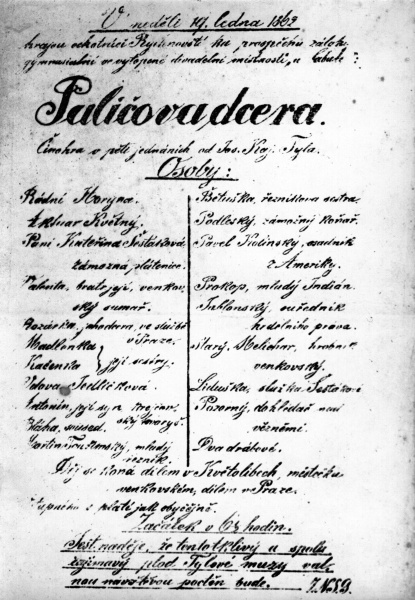 V neděli 19. ledna 1862
hrajou ochotníci Rychnovští ku prospěchu
gymnasialní ve vytopené divadelní místnosti „u Labutě“:
Paličova dcera.
Činohra v pěti jednáních od Jos. Kaj. Tyla.
Osoby:
Rádní Horyna.
Aktuar Květný.
Paní Kateřina Šestáková
zámožná pláteníce.
Valenta, bratr její, venkov-
ský
Rozárka, vhodem, ve službě
v Praze.
Madlenka
Kačenka
její sestry.
Vdova Jedličková.
Antonín, její syn
ský tovaryš.
Bláha, soused.
Martin mladý
řezník.
Bětuška, řezníkova sestra.
Podleský, zámožný koňař.
Pavel Kolínský, osadník
z Ameriky.
Prokop, mladý Indián.
Jablonský, ouředník
hrdelního práva.
Starý Melichar, hrobník
venkovský.
Liduška, služka Šestákové
Pozorný, dohlídač nad
vězněmi.
Dva drábové.
Děj se koná dílem v Květolibech, městečku
venkovském, dílem v Praze.
Vstupného se platí jak obyčejně.
Začátek v 6½ hodin.
Jest naděje, že tento tklivý a spolu
zajímavý plod Tylové muzy val-
nou návštěvou poctěn bude.